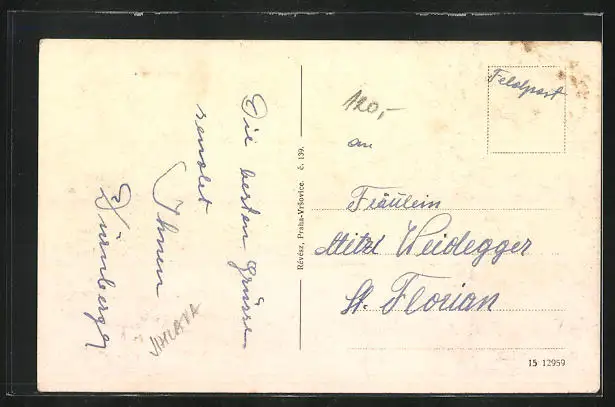 Die besten Grüsse
sendet
Ihnen
Nürnberger
JIHLAVA
Révész, Praha-Vršovice. č. 139.
120,-
Feldpost
an
Fräulein
Mitzi Heidegger
St. Florian
15 12959